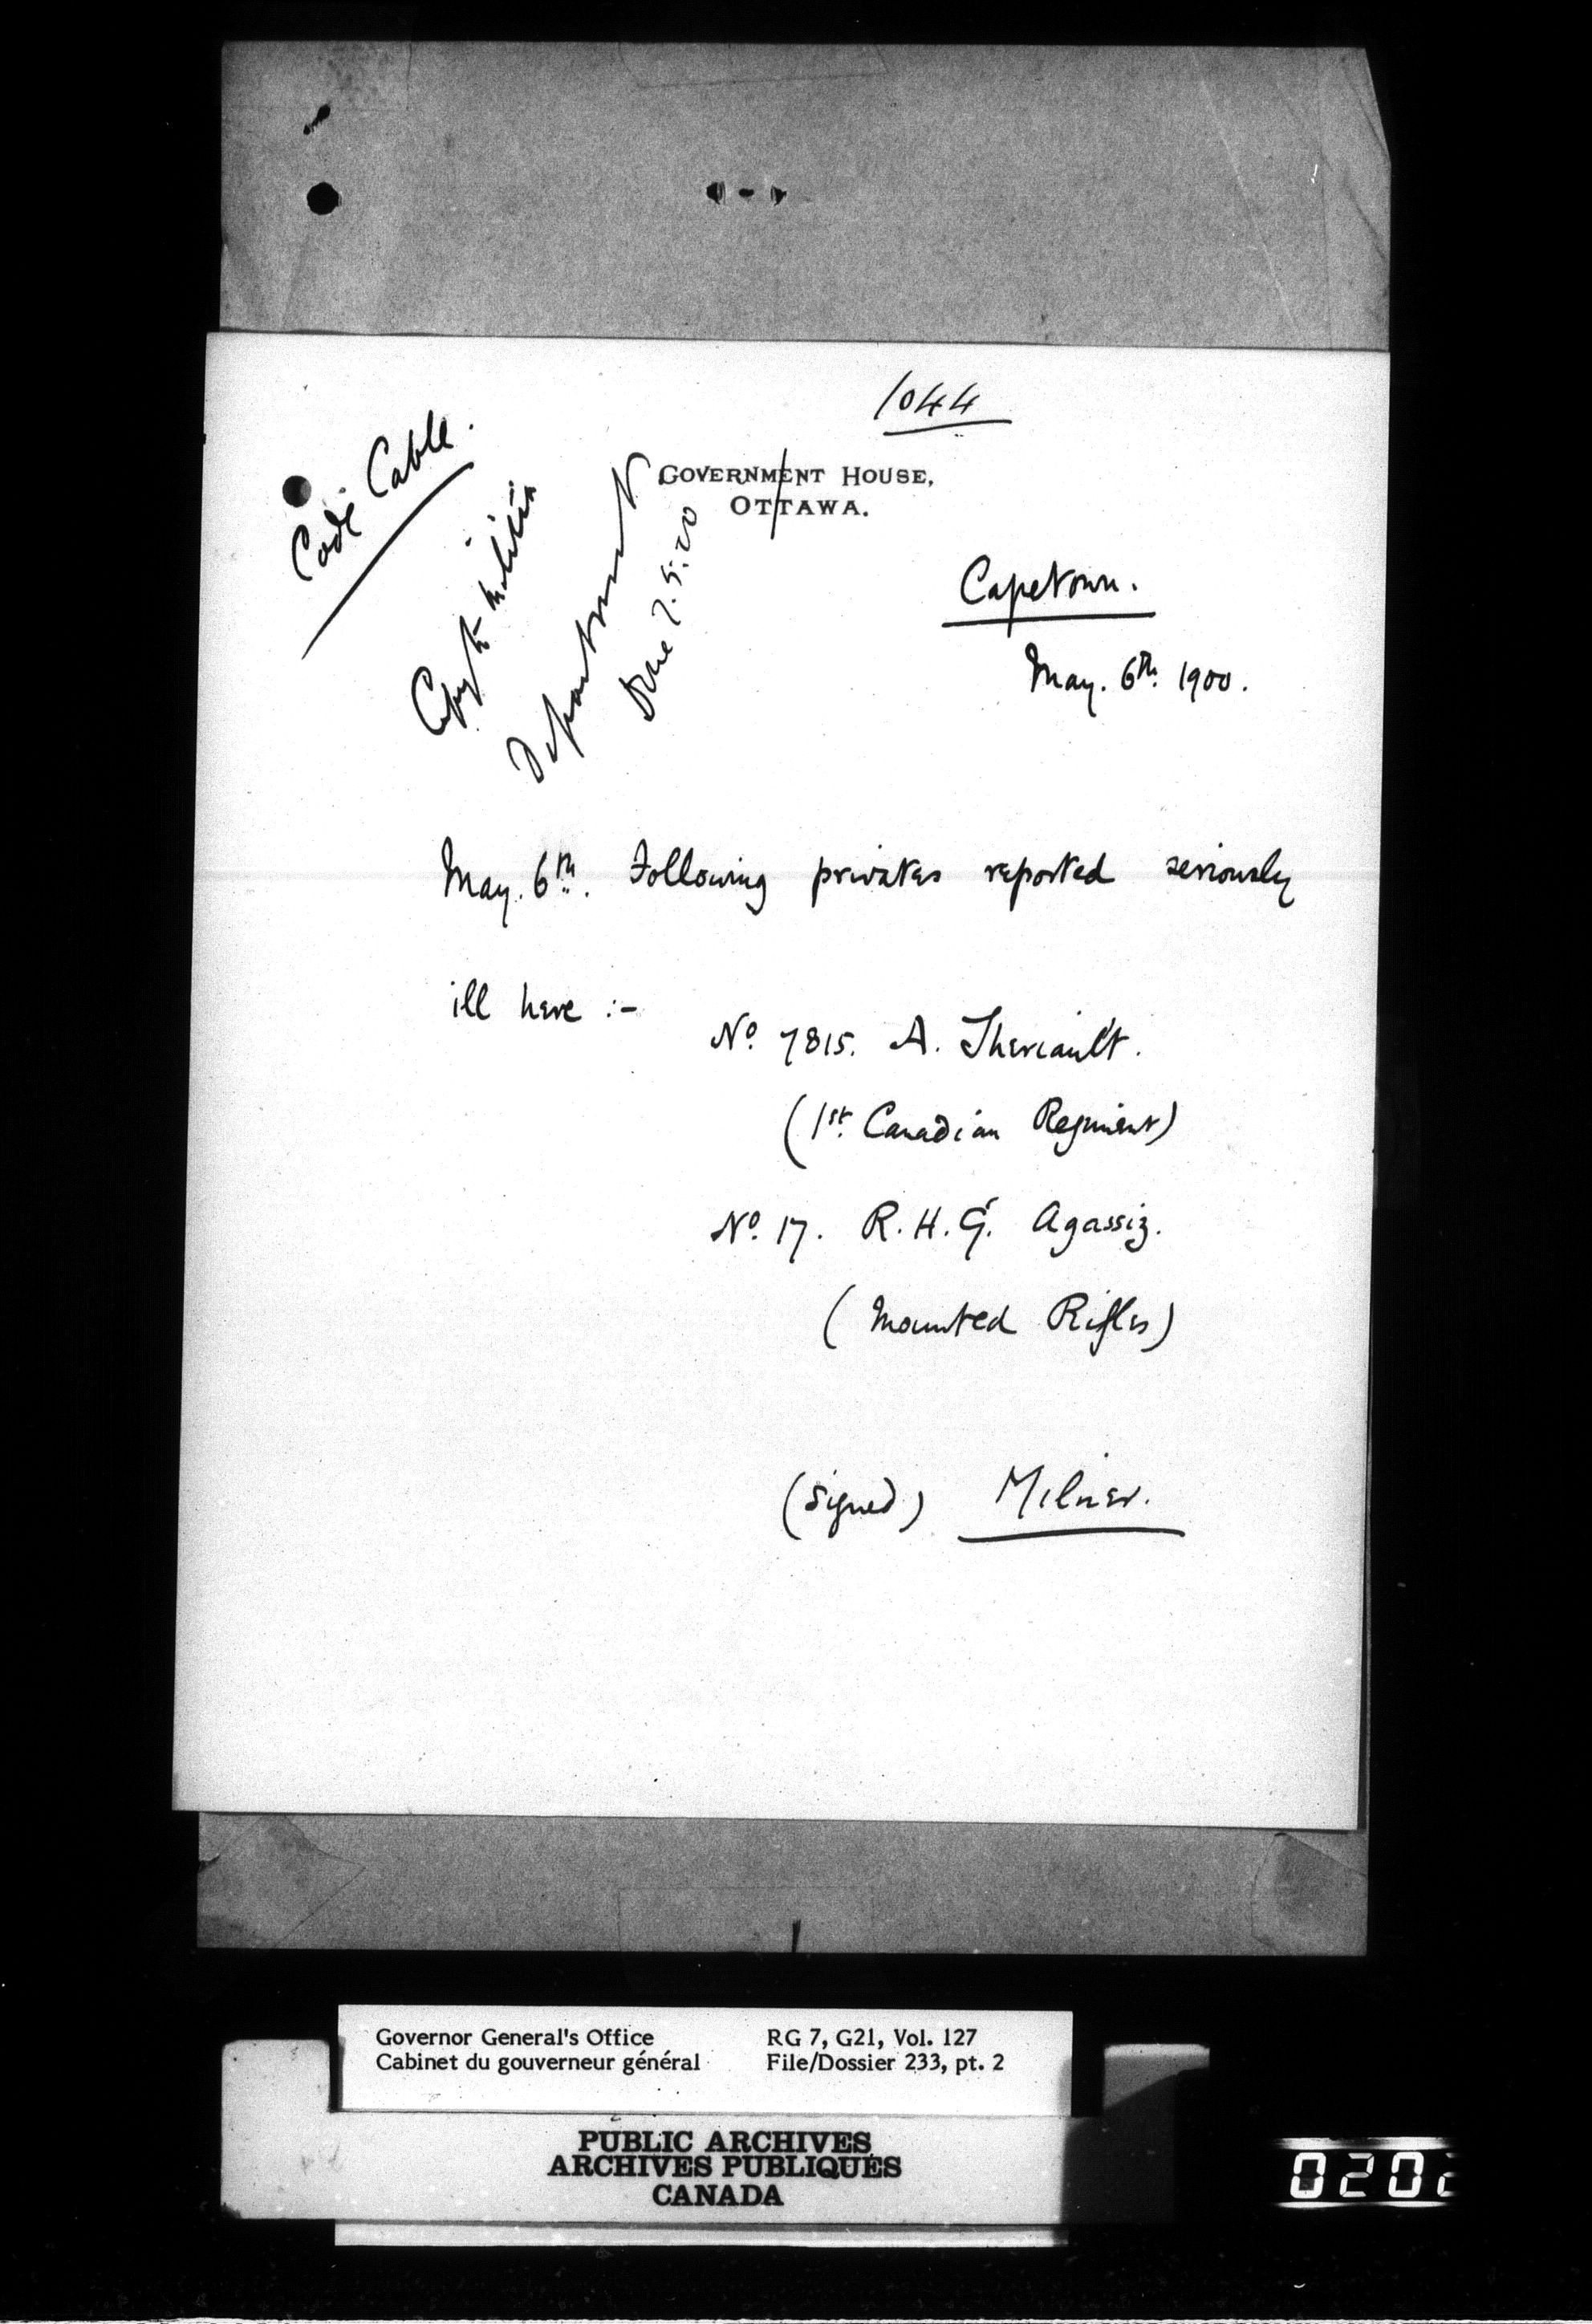 1044
Code Cable.
Copy to Militia
Department
Done 7.5.00
GOVERNMENT HOUSE,
OTTAWA.
Capetown.
May. 6th. 1900.
May. 6th. Following privates reported seriously
ill here :-
No. 7815. A. Theriault.
(1st. Canadian Regiment)
No. 17. R. H. G. Agassiz.
(Mounted Rifles)
(signed) Milner.
Governor General's Office RG 7, G21, Vol. 127
Cabinet du gouverneur général File/Dossier 233, pt. 2
PUBLIC ARCHIVES
ARCHIVES PUBLIQUES
CANADA
0202